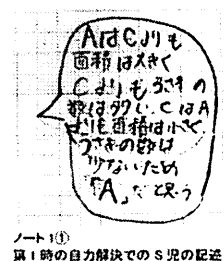 AはCよりも
面積は大きく
Cよりもうさぎの
数は少ない。CはA
よりも面積は小さく
うさぎの数は
少ないため
「A」だと思う
ノート1①
第1時の自力解決でのS児の記述